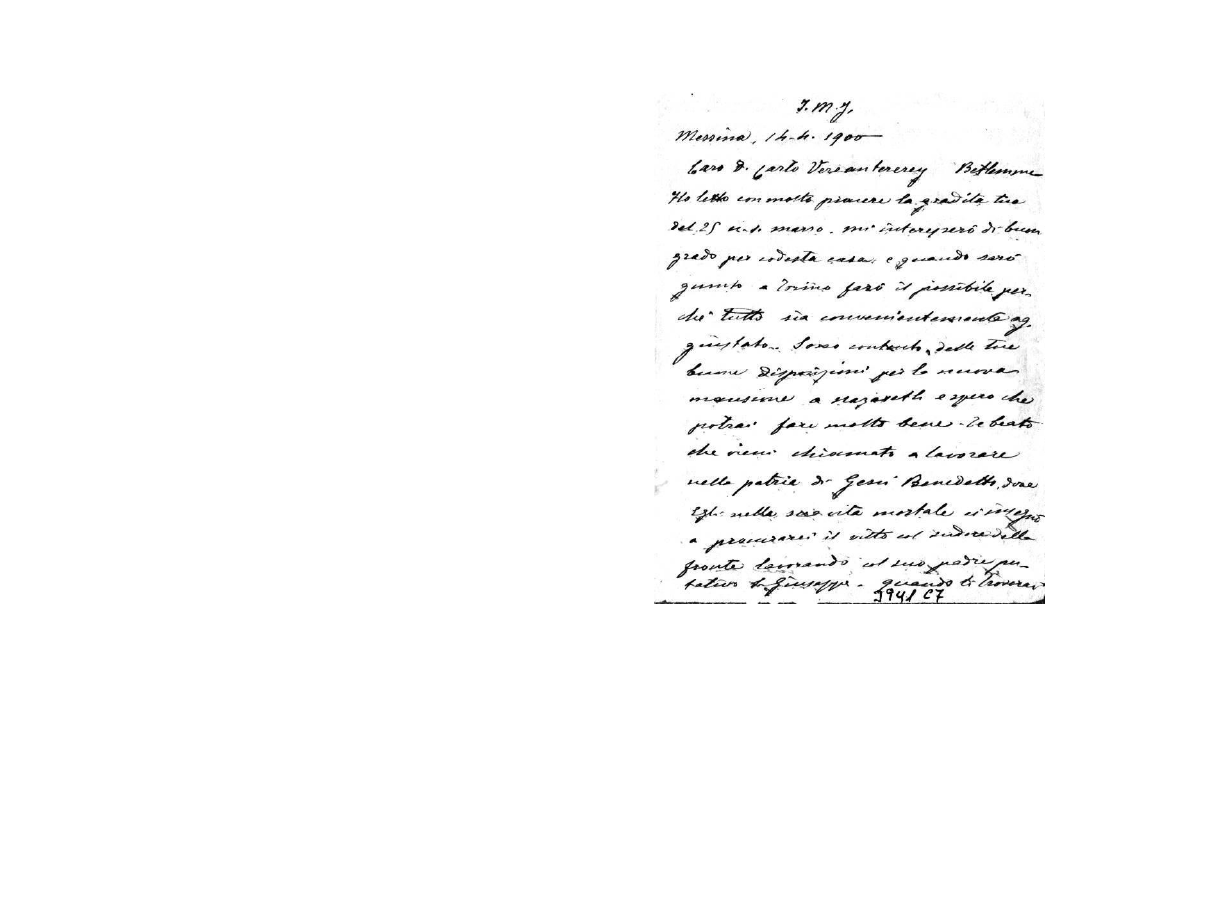 J. M. J.
Messina, 14-4. 1900
Caro D. Carlo Betlemme
Ho letto con molto piacere la gradita tua
del 25 u.s. marzo. mi interesserò di buon
grado per codesta casa, e quando sarò
giunto a Torino farò il possibile per-
chè tutto sia convenientemente ag-
giustato. Sono contento, delle tue
buone disposizioni per la nuova
mansione a Nazareth e spero che
potrai fare molto bene. Te beato
che vieni chiamato a lavorare
nella patria di Gesù Benedetto, dove
Egli nella sua vita mortale ci insegnò
a procurarci il vitto col sudore della
fronte lavorando col suo padre pu-
tativo S. Giuseppe. quando ti troverai
3941 C7